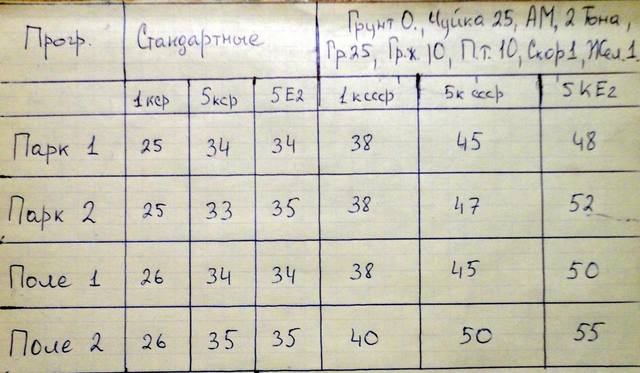 Прогр. Стандартные Грунт 0., Чуйка 25, АМ, 2 Тона,
Гр 25, Гр.ж. 10, П.т. 10, Скор 1, Жел. 1.
1 кср 5кср 5Е2 1к ссср 5к ссср 5 КЕ2
Парк 1 25 34 34 38 45 48
Парк 2 25 33 35 38 47 52
Поле 1 26 34 34 38 45 50
Поле 2 26 35 35 40 50 55